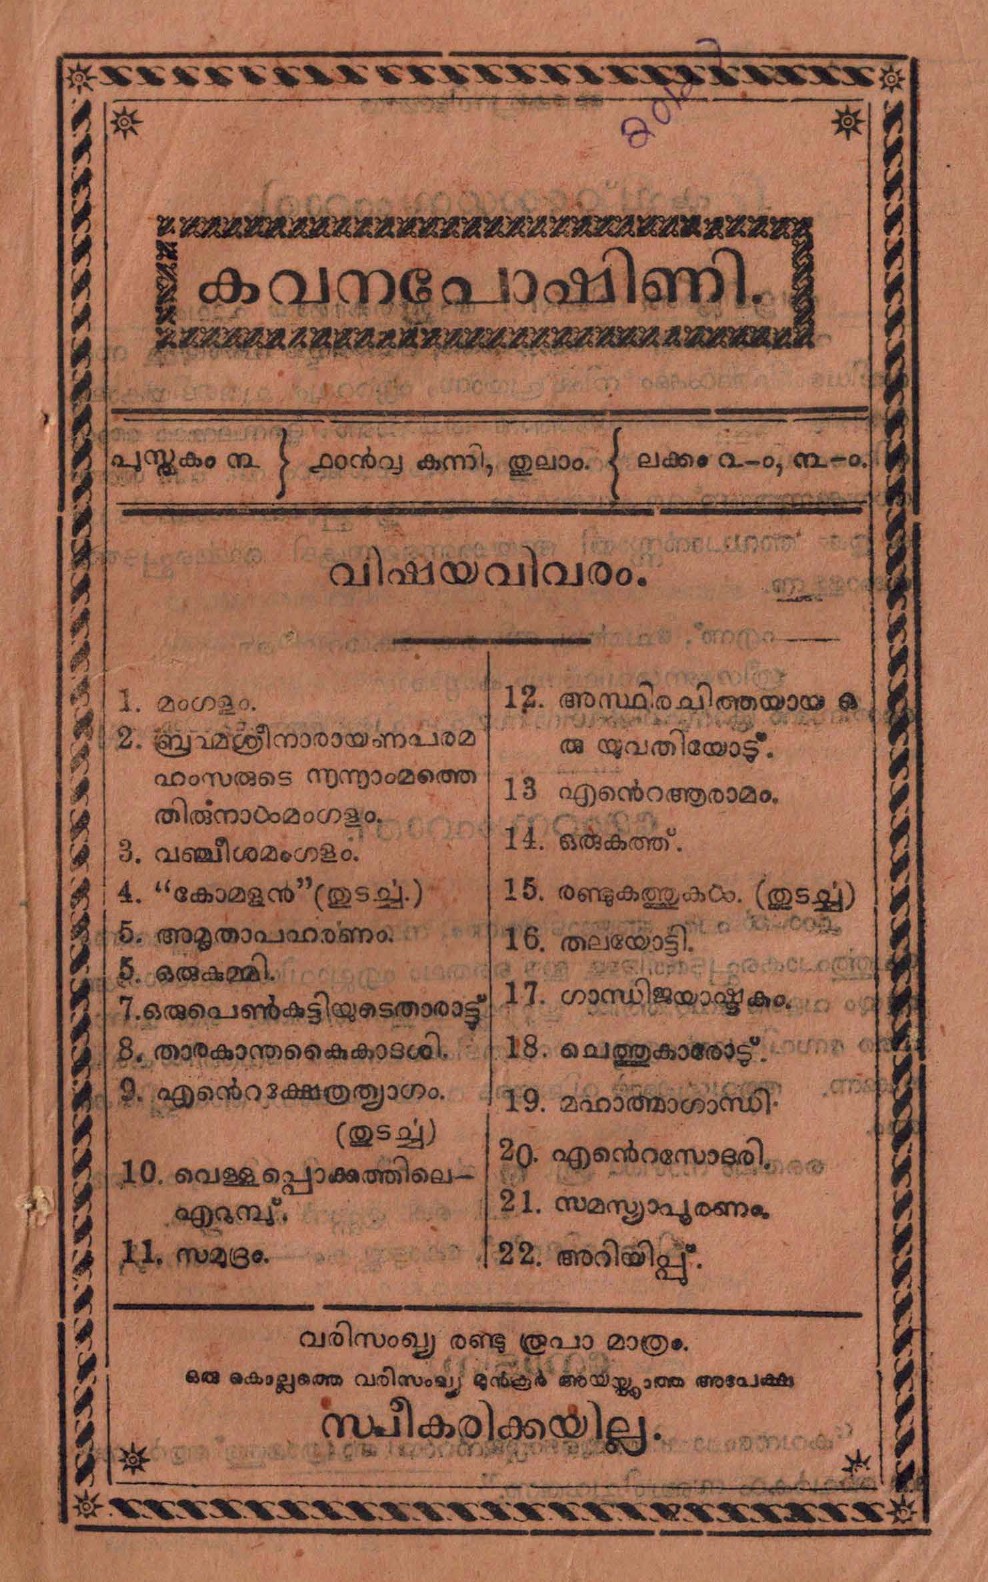 കവനപോഷിണി.
പുസ്തകം ൩ } ൧൦൯൮ കന്നി, തുലാം. { ലക്കം ൨-ാ, ൩-ാ.
വിഷയവിവരം.
1. മംഗളം.
2. ബ്രഹ്മശ്രീനാരായണപരമ
ഹംസരുടെ ൬൬ാംമത്തെ
തിരുനാൾമംഗളം.
3. വഞ്ചീശമംഗളം.
4. “കോമളൻ”(തുടൎച്ച.)
5. അമൃതാപഹരണം.
5. ഒരുകുമ്മി.
7.ഒരുപെൺകുട്ടിയുടെതാരാട്ട്
8. താരകാന്തകൈകാദശി.
9. എൻെറക്ഷേത്രത്യാഗം.
(തുടൎച്ച)
10. വെള്ളപ്പൊക്കത്തിലെ—
എറുമ്പ്.
11. സമുദ്രം.
12. അസ്ഥിരചിത്തയായ ഒ
രു യുവതിയോട്.
13 എൻെറആരാമം.
14. ഒരുകത്ത്.
15. രണ്ടുകത്തുകൾ. (തുടൎച്ച)
16. തലയോട്ടി.
17. ഗാന്ധിജയാഷ്ടകം.
18. ചെത്തുകാരോട്.
19. മഹാത്മാഗാന്ധി·
20. എൻെറസോദരി.
21. സമസ്യാപൂരണം.
22. അറിയിപ്പ്.
വരിസംഖ്യ രണ്ടു രൂപാ മാത്രം.
ഒരു കൊല്ലത്തെ വരിസംഖ്യ മുൻകൂർ അയയ്ക്കാത്ത അപേക്ഷ
സ്വീകരിക്കയില്ല.